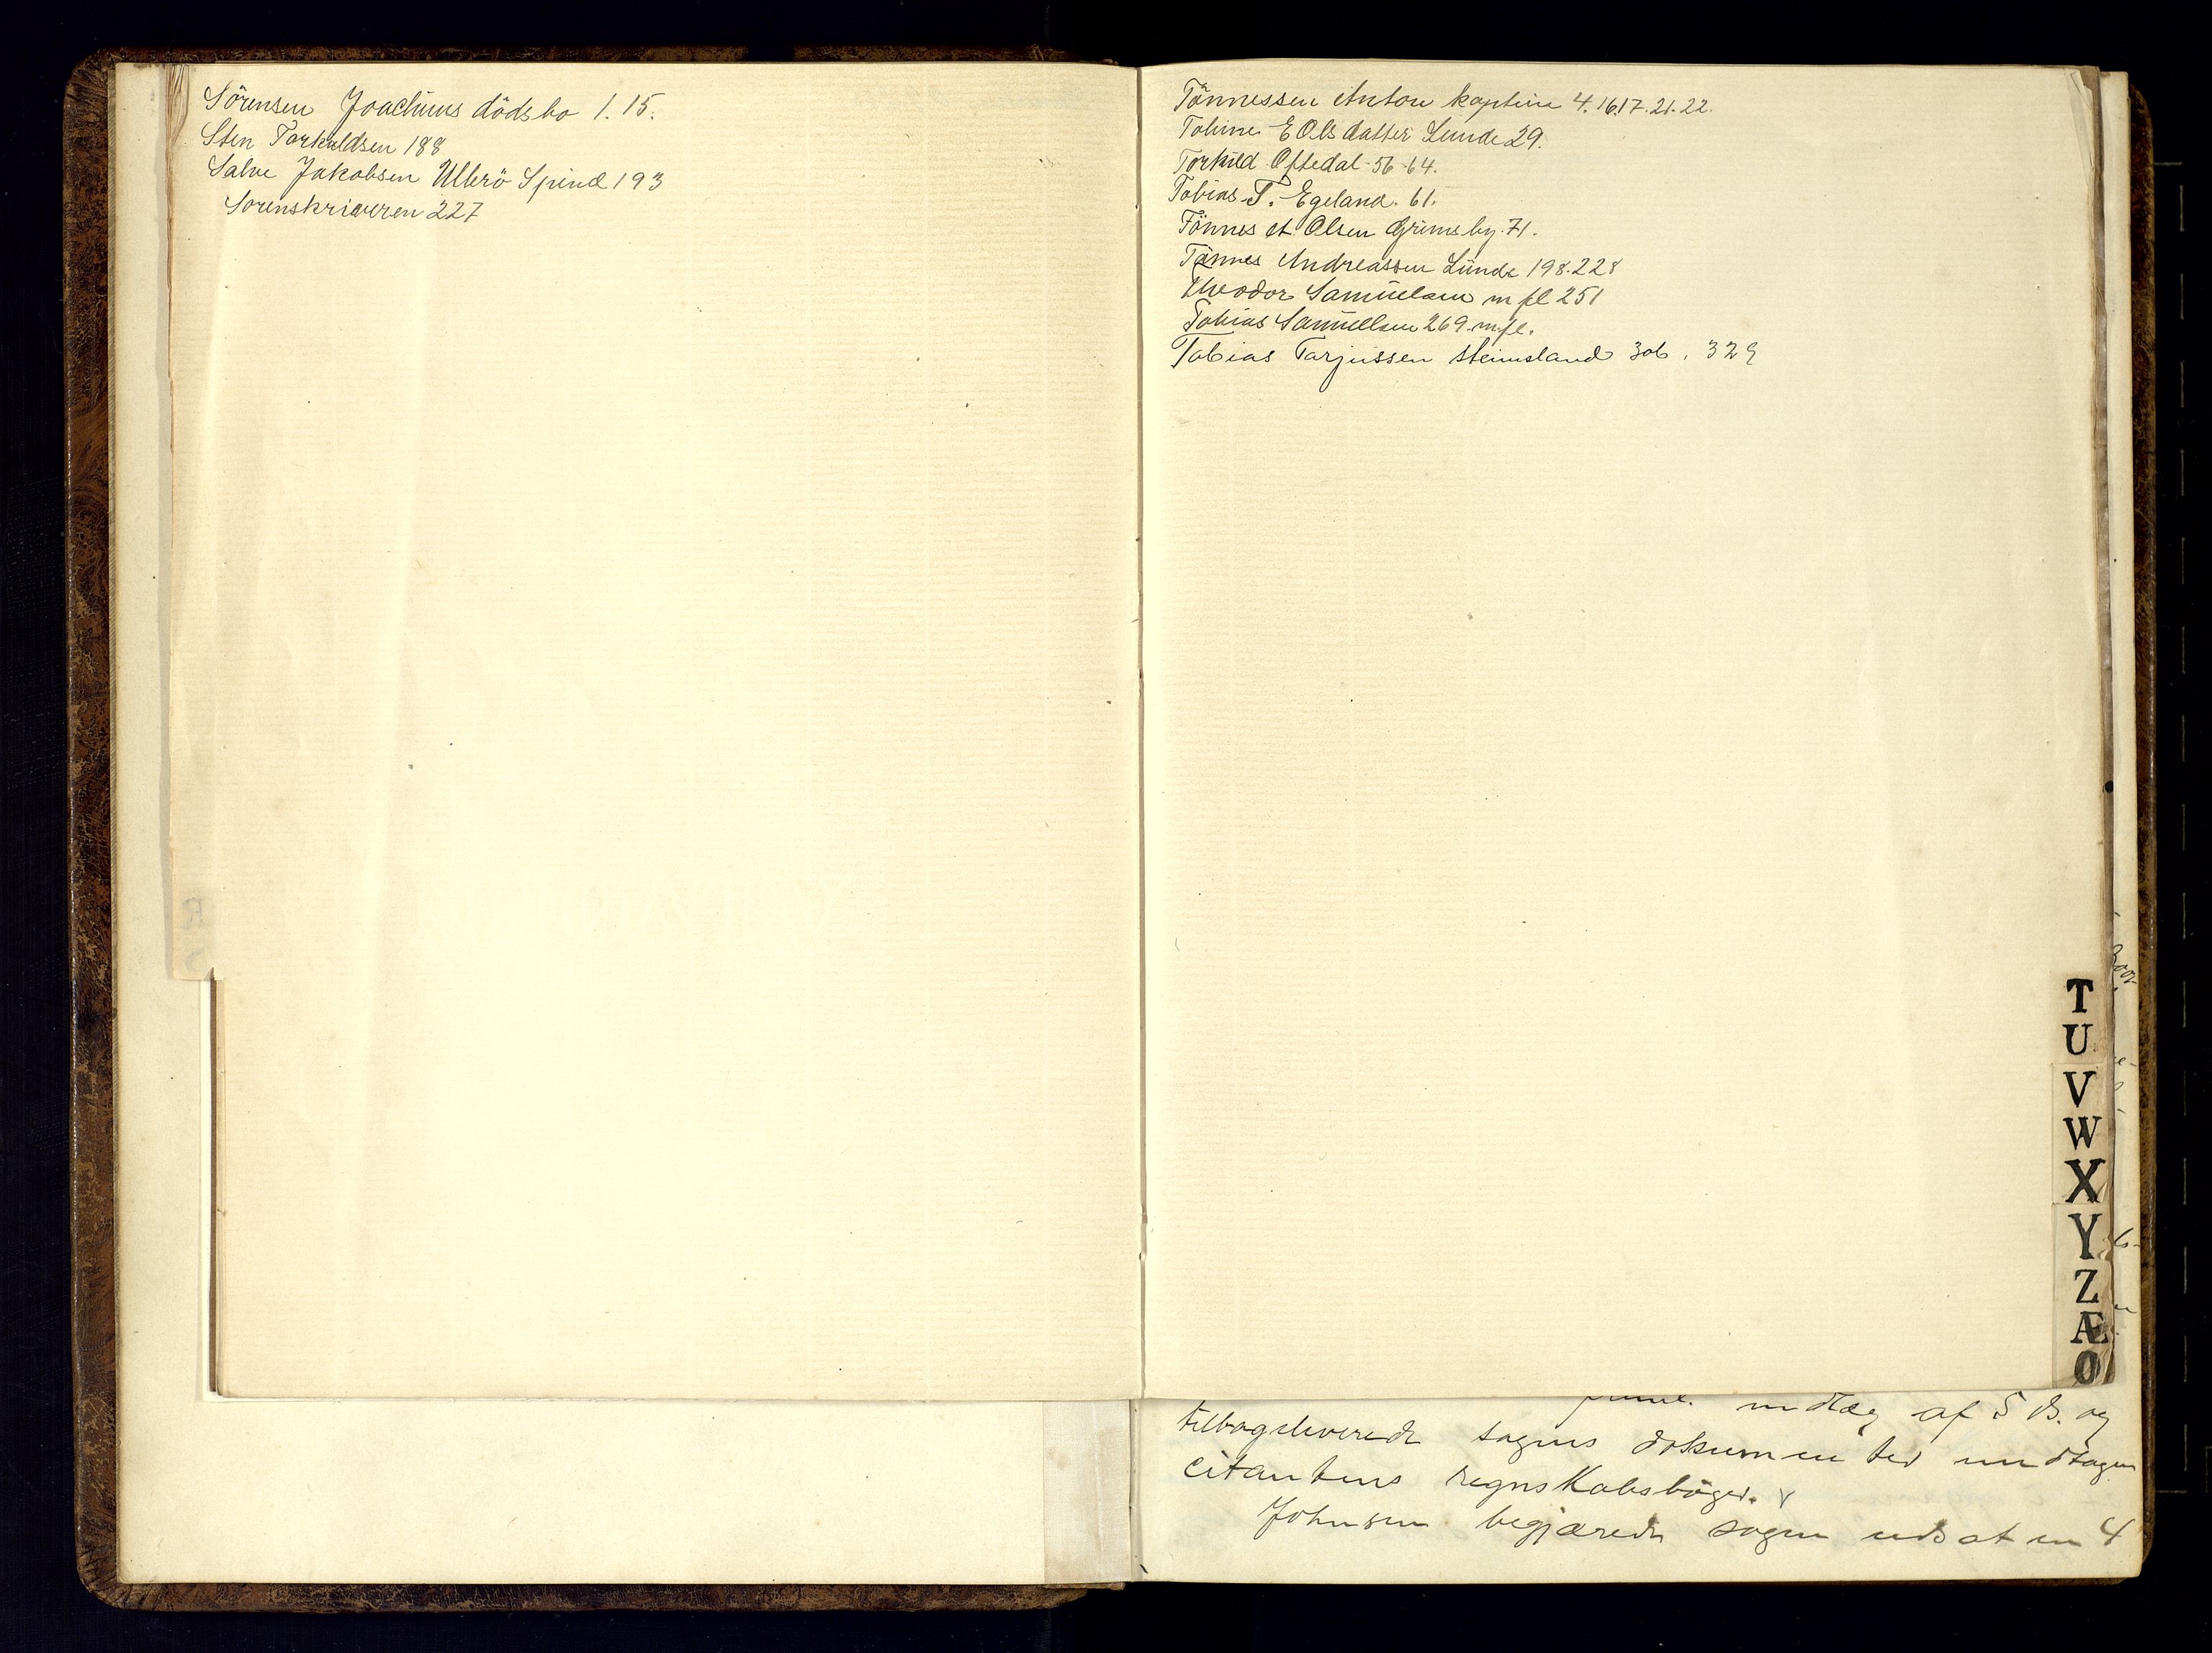 Sörensen Joachims dödsbo 1. 15.
Sten Torkeldsen 188
Salve Jakobsen Ullerö Spind 193
Sorenskriveren 227
Tönnessen Anton kaptein 4. 16. 17. 21. 22.
Toline E Olsdatter Lunde 29.
Torkild Oftedal 56-64.
Tobias T. Egeland. 61.
Tönnes A. Olsen Grimsby. 71.
Tönnes Andreassen Lunde 198. 228
Theodor Samuelsen m fl 251
Tobias Samuellsen 269 m. fl.
Tobias Tarjussen Steinsland 306. 329
T
U
V
W
X
Y
Z
Æ
Ø
indlæg af 5 ds. og
tilbageleverede sagens dokumenter undtagen
citantens regnskabsböger.
Johnsen begjærede sagen udsat en 4